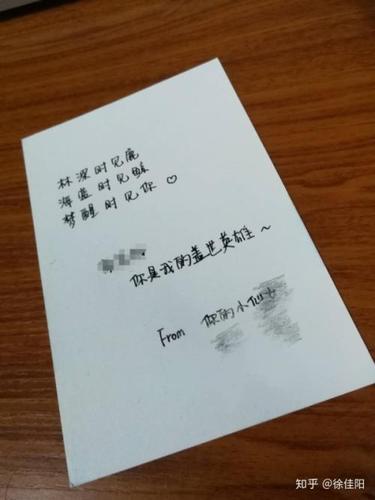 林深时见鹿
海蓝时见鲸
梦醒时见你♡
你是我的盖世英雄~
From 你的小仙女
知乎 @徐佳阳